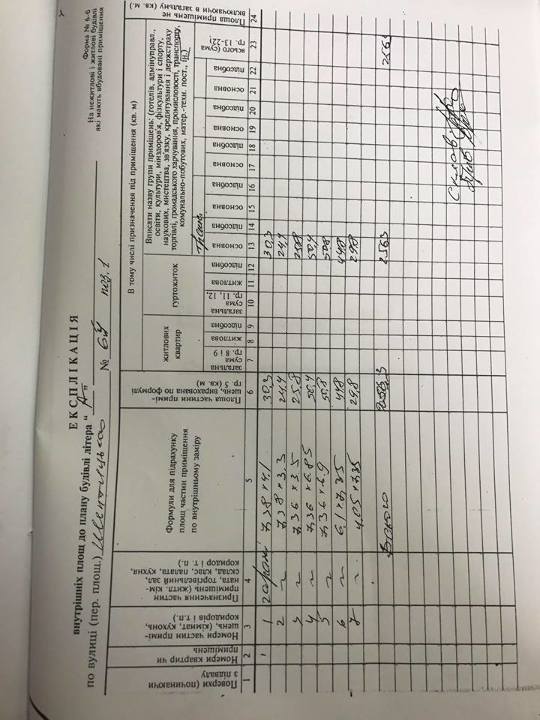 Форма № 6-б
На нежитлові і житлові будівлі
які мають вбудовані приміщення
ЕКСПЛІКАЦІЯ
внутрішніх площ до плану будівлі літера "А"
по вулиці (пер. площ.) № 6У поз. 1
Поверхи (починаючи з підвалу
Номери квартир чи приміщень
Номери частин приміщень, (кімнат, кухонь, коридорів і т.п.)
Призначення частин приміщень (житл. кімната, торгівельний зал, склад, клас, палата, кухня, коридор і т. п.)
Формули для підрахунку площ частин приміщення по внутрішньому заміру
Площа частини приміщень, вирахована по формулі гр 5 (кв. м)
В тому числі призначення під приміщення (кв. м)
житлових квартир
загальна гр. 8 і 9
житлова
підсобна
гуртожиток
загальна сума гр. 11, 12,
житлова
підсобна
Вписати назву групи приміщень: (готелів, адмінуправл., освіти, культури, міндоров'я, фізкультури і спорту, наукових, мистецтва, зв'язку, кредитування і держстраху торгівлі, громадського харчування, промисловості, транспорту, комунально-побутових, матер.-техн. пост., ін.)
основна
підсобна
основна
підсобна
основна
підсобна
основна
підсобна
основна
підсобна
всього (сума гр. 13-22)
Площа приміщень не включаючи в загальну (кв. м)
1 2 3 4 5 6 7 8 9 10 11 12 13 14 15 16 17 18 19 20 21 22 23 24
1 1 7,38 x 4,1 30,3 30,3
2 7,38 x 3,3 24,4 24,4
3 7,36 x 3,5 25,8 25,8
4 7,36 x 6,85 50,4 50,4
5 7,36 x 6,9 50,8 50,8
6 6,1 x 7,35 44,8 44,8
7 4,05 x 7,35 29,8 29,8
Всього 256,3 256,3 256,3